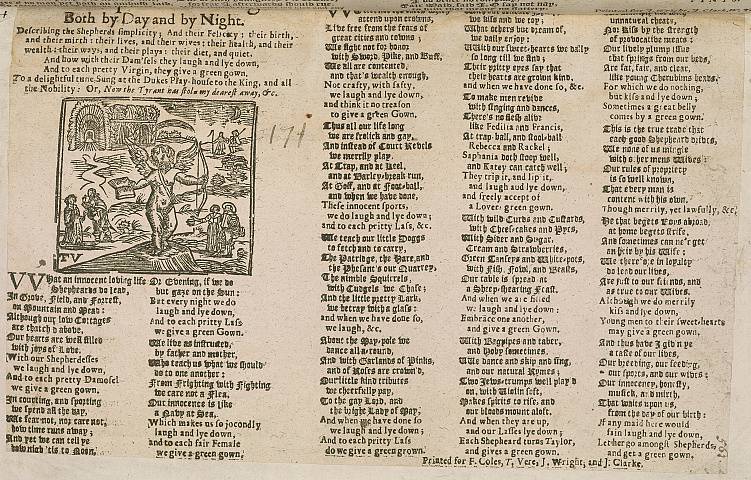 Both by Day and by Night.
Describing the Shepherds simplicity; And their Felicity: their birth,
and their mirth: their lives, and their wives: their health, and their
wealth: their ways, and their plays: their diet, and quiet.
And how with their Dam'sels they laugh and lye down,
And to each pretty Virgin, they give a green gown.
To a delightful tune, Sung at the Dukes Play-house to the King, and all
the Nobility: Or, Now the Tyrant has stoln my dearest away, &c.
171
TV
WHat an innocent loving life
Shepheards do lead,
In Grove, Field, and Forrest,
on Mountain and Mead:
Although our low Cottages
are thatch'd above,
Our hearts are well fill'd
with joys of Love.
With our Shepherdesses
we laugh and lye down,
And to each pretty Damosel
we give a green gown.
In courting, and sporting
we spend all the day,
We fear not, nor care not,
how time runs away;
And yet we can tell ye
how nich 'tis to Noon,
Or Evening, if we do
but gaze on the Sun:
But every night we do
laugh and lye down,
And to each pritty Lass
we give a green Gown.
We live as instructed,
by father and mother,
Who teach us what we should
do to one another:
From Frighting with Fighting
we care not a Flea,
Our innocence is like
a Navy at Sea.
Which makes us so jocondly
laugh and lye down,
and to each fair Female
we give a green Gown.
attend upon crowns,
Live free from the fears of
great cities and towns.
We fight not for honor,
with Sword, Pike, and Buff,
We all are contented,
and that's wealth enough,
Not crafty, with safty,
we laugh and lye down,
and think it no treason
to give a green Gown.
Thus all our life long
we are frolick and gay,
And instead of Court Revels
we merrily play.
At Trap, and at Keel,
and at Barley-break run,
At Goff, and at Foot-ball,
and when we have done,
These innocent sports,
we do laugh and lye down;
and to each pritty Lass, &c.
We teach our little Doggs
to fetch and to carry,
The Patridge, the Hare, and
the Phesant's our Quarrey,
The nimble Squirrels,
with Cudgels we Chase;
And the little pretty Lark,
we betray with a glass:
and when we have done so,
we laugh, &c.
About the May-pole we
dance all around,
And with Garlands of Pinks,
and of Roses are crown'd,
Our little kind tributes
we cheerfully pay,
To the gay Lord, and
the bright Lady of May,
And when we have done so
we laugh and lye down;
And to each pritty Lass
do we give a green grown.
we kiss and we toy;
What others but dream of,
we daily enjoy:
With our Sweet-hearts we dally
so long till we find;
Their pritty eyes say that
their hearts are grown kind.
and when we have done so, &c.
To make men revive
with singing and dances,
There's no flesh alive
like Fedilia and Francis,
At trap-ball, and stool-ball
Rebecca and Rackel;
Saphania doth stoop well,
and Katey can catch well;
They trip it, and lip it,
and laugh and lye down,
and freely accept of
a Lover green gown.
With wild Curds and Custards,
with Cheescakes and Pyes,
With Sider and Sugar,
Cream and Strawberries,
Green Tanseys and White-pots,
with Fish, Fowl, and Beasts,
Our table is spread at
a Sheep-shearing Feast,
And when we are filled
we laugh and lye down:
Embrace one another,
and give a green Gown.
With Bagpipes and taber,
and Hoby sometimes,
We dance and skip and sing,
and our natural Rymes;
Two Jews-trumps well play'd
on, with Violin sets,
Makes spirits to rise, and
our bloods mount aloft.
And when they are up,
and our Lasses lye down;
Each Shepherd turns Taylor,
and gives a green gown.
unnatural cheats,
Nor Kiss by the strength
of provocative meats:
Our lively plump issue
that springs from our beds,
Are fat, fair, and clear,
like young Cherubims heads.
For which we do nothing,
but kiss and lye down;
Sometimes a great belly
comes by a green gown.
This is the true trade that
each good Shepheard drives,
We none of us mingle
with others mens Wives:
Our rules of propriety
is so well known,
That every man is
content with his own.
Though merrily, yet lawfully, &c.
He that begets Love abroad,
at home begets strife.
And sometimes can ne'r get
an heir by his Wife:
We there's e in loyalty
do lead our lives,
Are just to our friends, and
as true to our Wives.
Although we do merrily
kiss and lye down,
Young men to their sweet-hearts
may give a green gown.
And thus have I given ye
a taste of our lives,
Our breeding, our feeding,
our sports, and our wives;
Our innocency, honesty,
musick, and mirth,
That waits upon us,
from the day of our birth:
If any maid here would
fain laugh and lye down,
Let her go amongst Shepherds,
and get a green gown.
Printed for F. Coles, T, Vere, J, Wright, and J. Clarke.